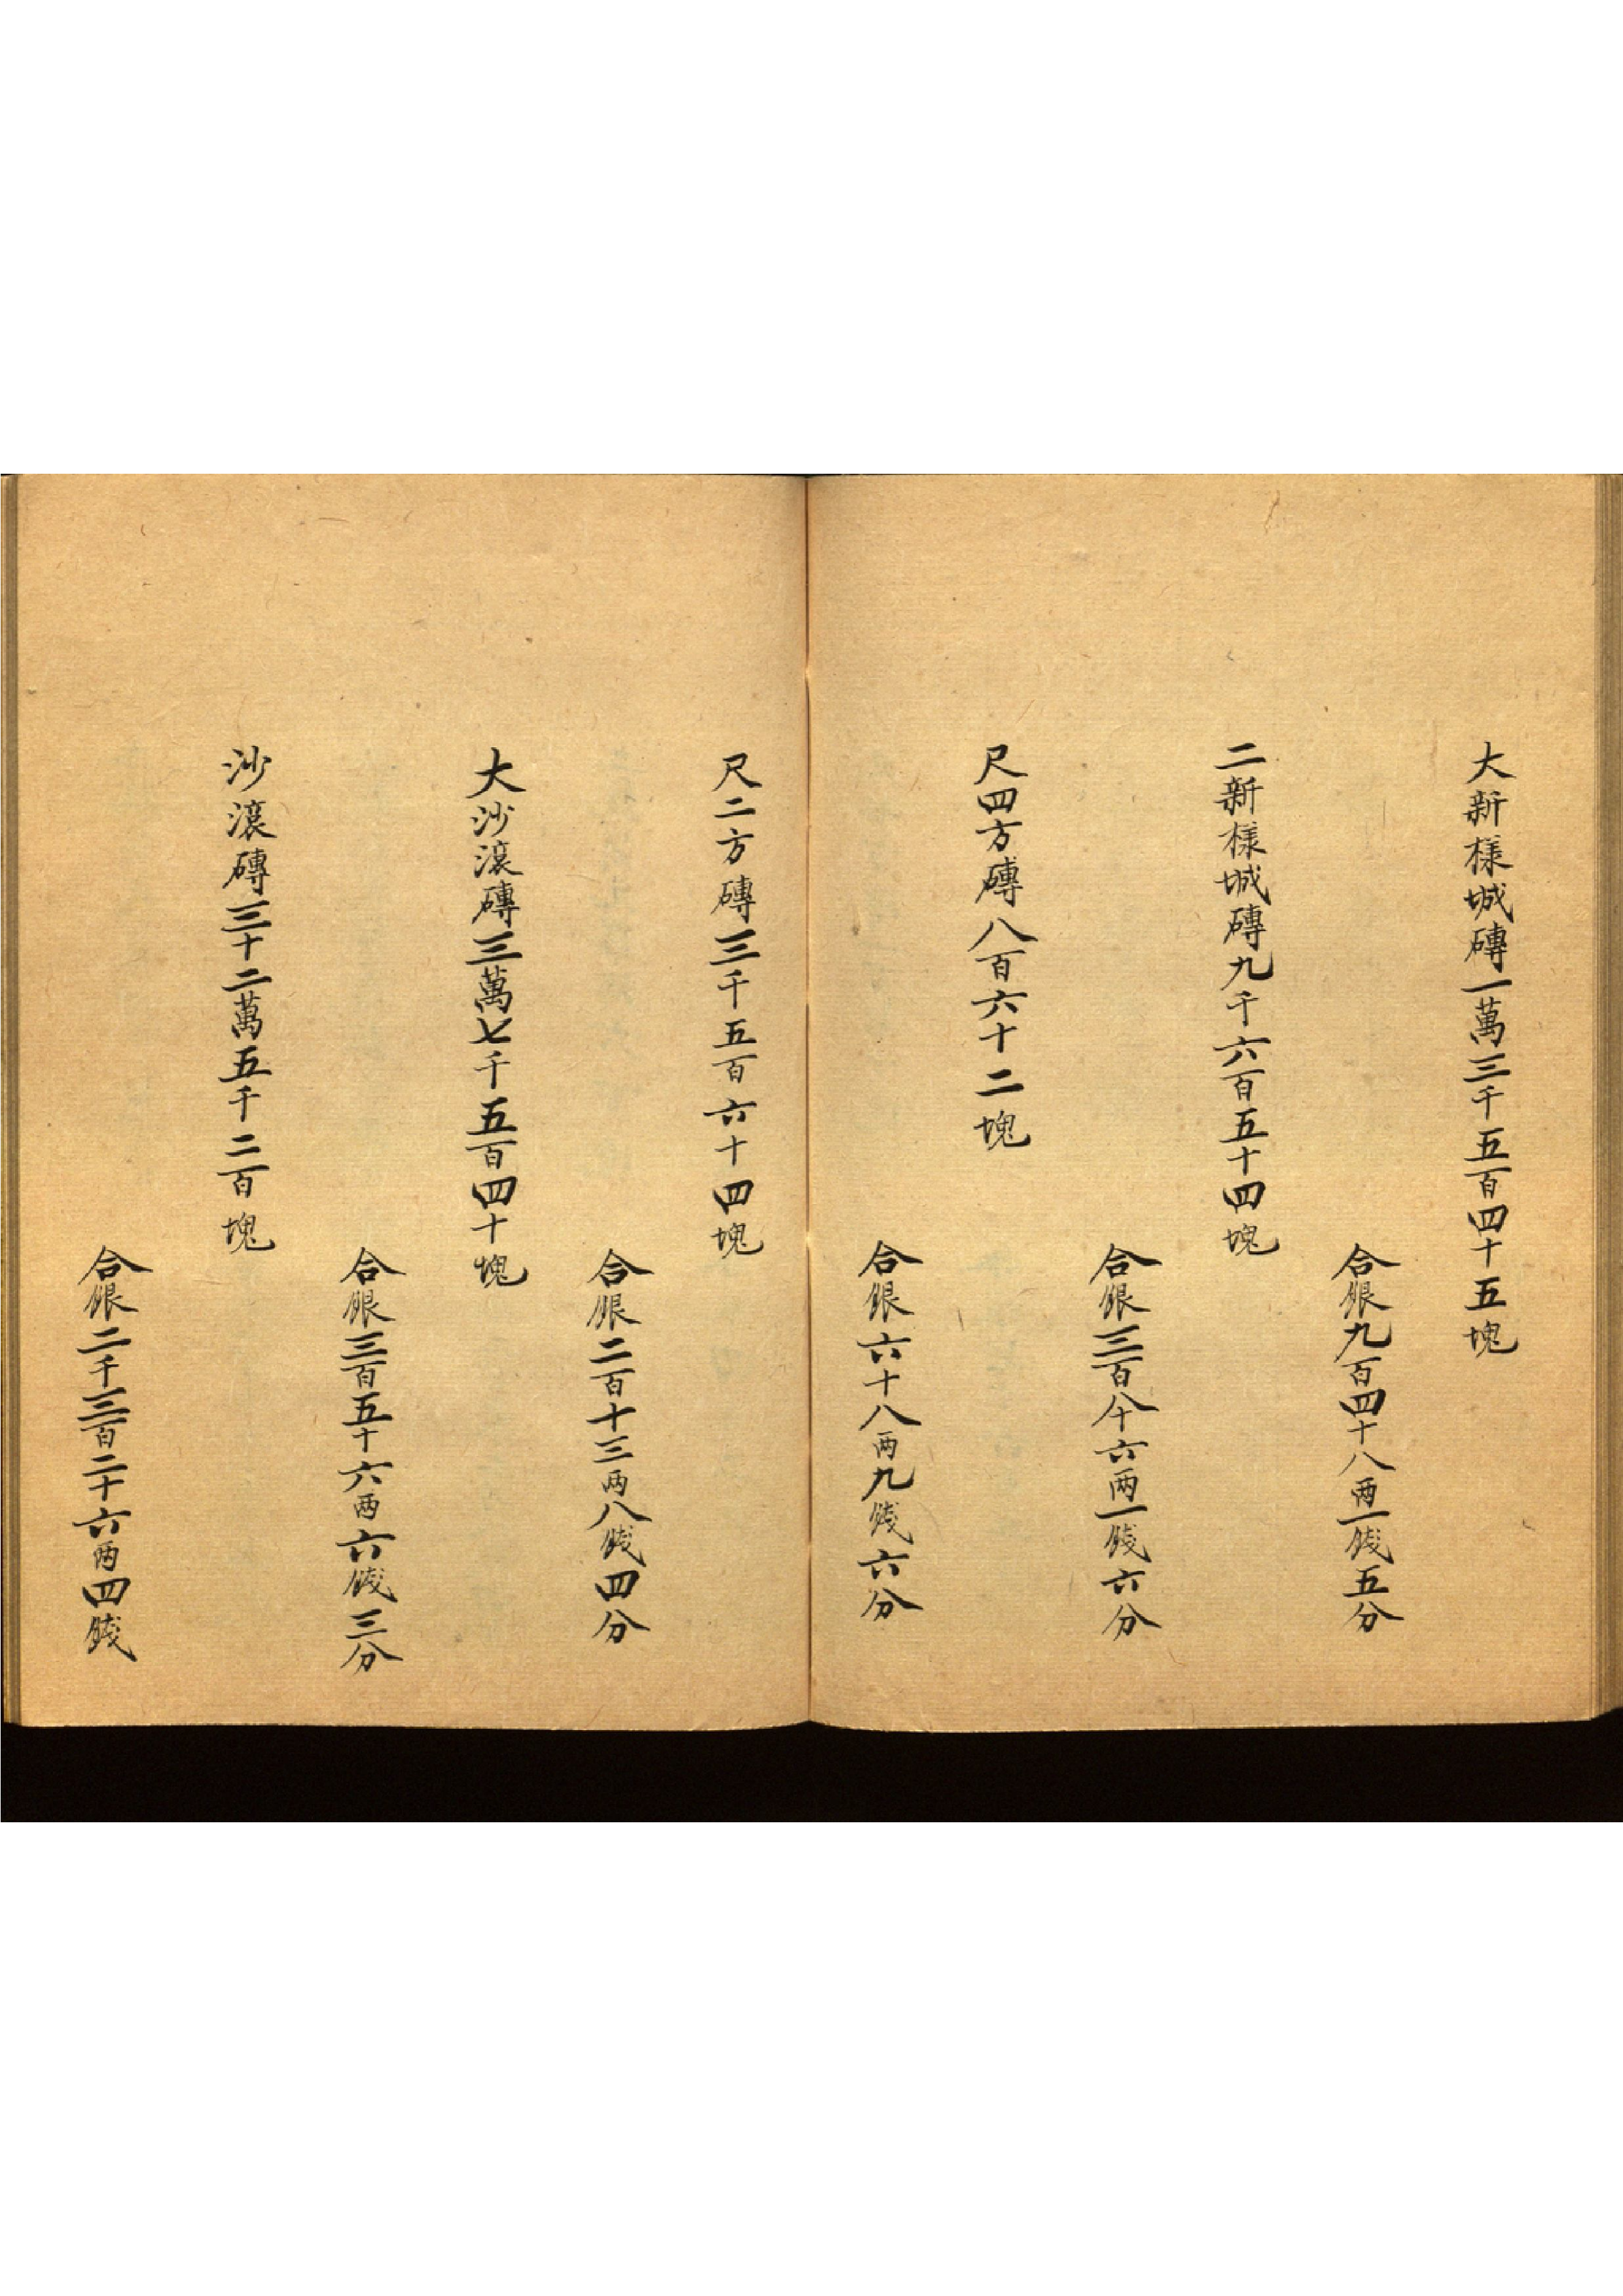 大新樣城磚一萬三千五百四十五塊
合銀九百四十八两一錢五分
二新樣城磚九千六百五十四塊
合銀三百八十六两一錢六分
尺四方磚八百六十二塊
合銀六十八两九錢六分
尺二方磚三千五百六十四塊
合銀二百十三两八錢四分
大沙滾磚三萬七千五百四十塊
合銀三百五十六两六錢三分
沙滾磚三十二萬五千二百塊
合銀二千三百二十六两四錢